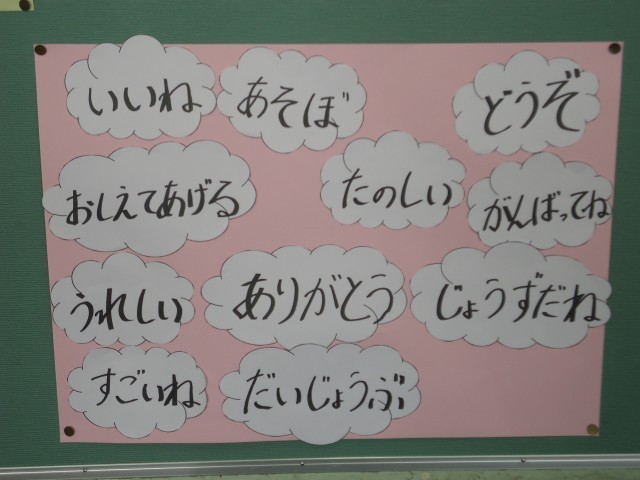 いいね
あそぼ
どうぞ
おしえてあげる
たのしい
がんばってね
うれしい
ありがとう
じょうずだね
すごいね
だいじょうぶ